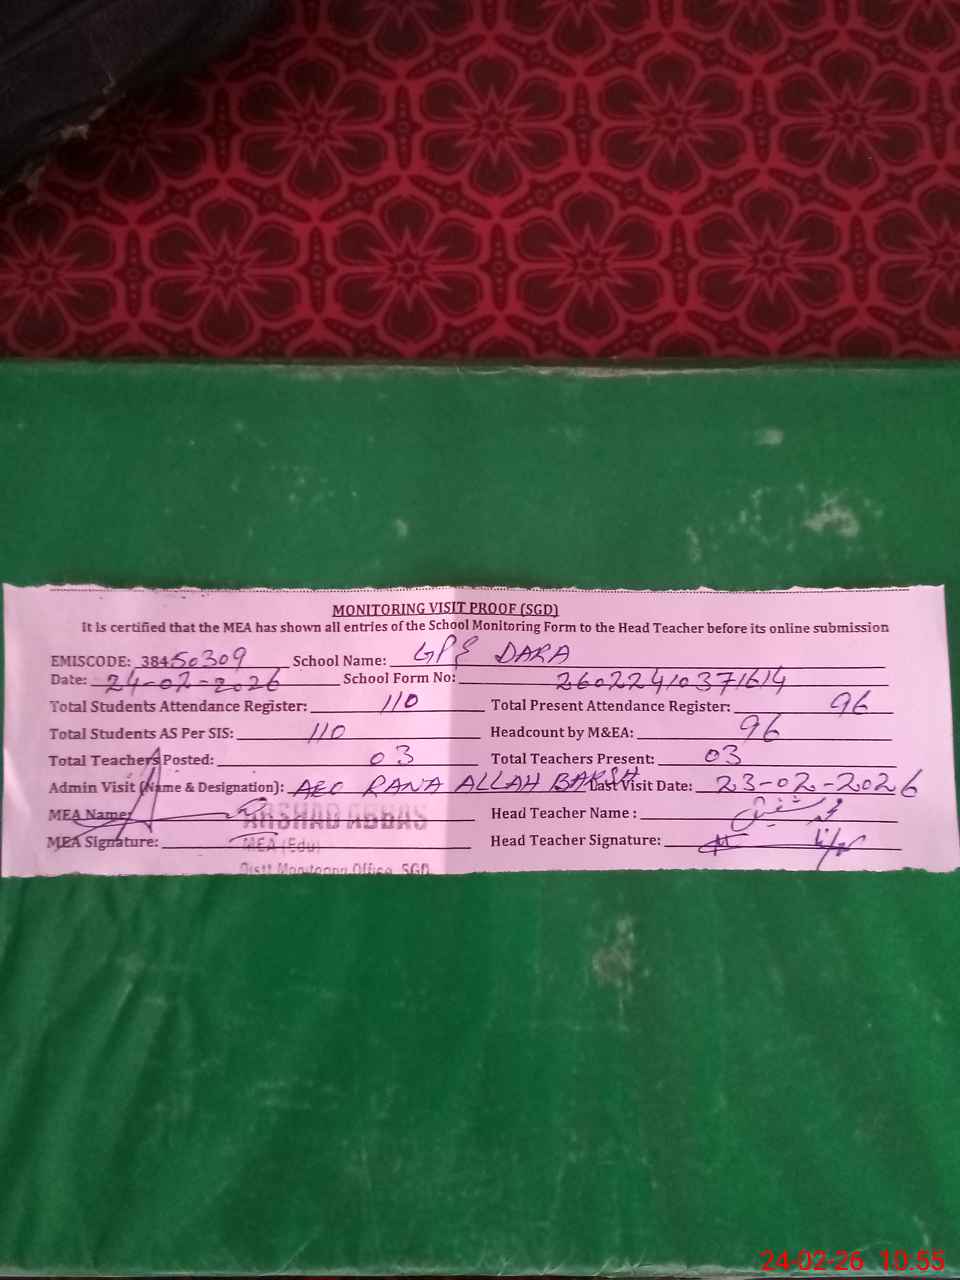 MONITORING VISIT PROOF (SGD)
It is certified that the MEA has shown all entries of the School Monitoring Form to the Head Teacher before its online submission
EMISCODE: 38450309 School Name: GPS DARA
Date: 24-02-2026 School Form No: 2602241037 1614
Total Students Attendance Register: 110 Total Present Attendance Register: 96
Total Students AS Per SIS: 110 Headcount by M&EA: 96
Total Teachers Posted: 03 Total Teachers Present: 03
Admin Visit (Name & Designation): AEO RANA ALLAH BAKSH Last Visit Date: 23-02-2026
MEA Name: ARSHAD ABBAS Head Teacher Name : محمد شفیق
MEA Signature: MEA (Edu) Head Teacher Signature:
Distt Monitoring Office, SGD
24-02-26 10:55